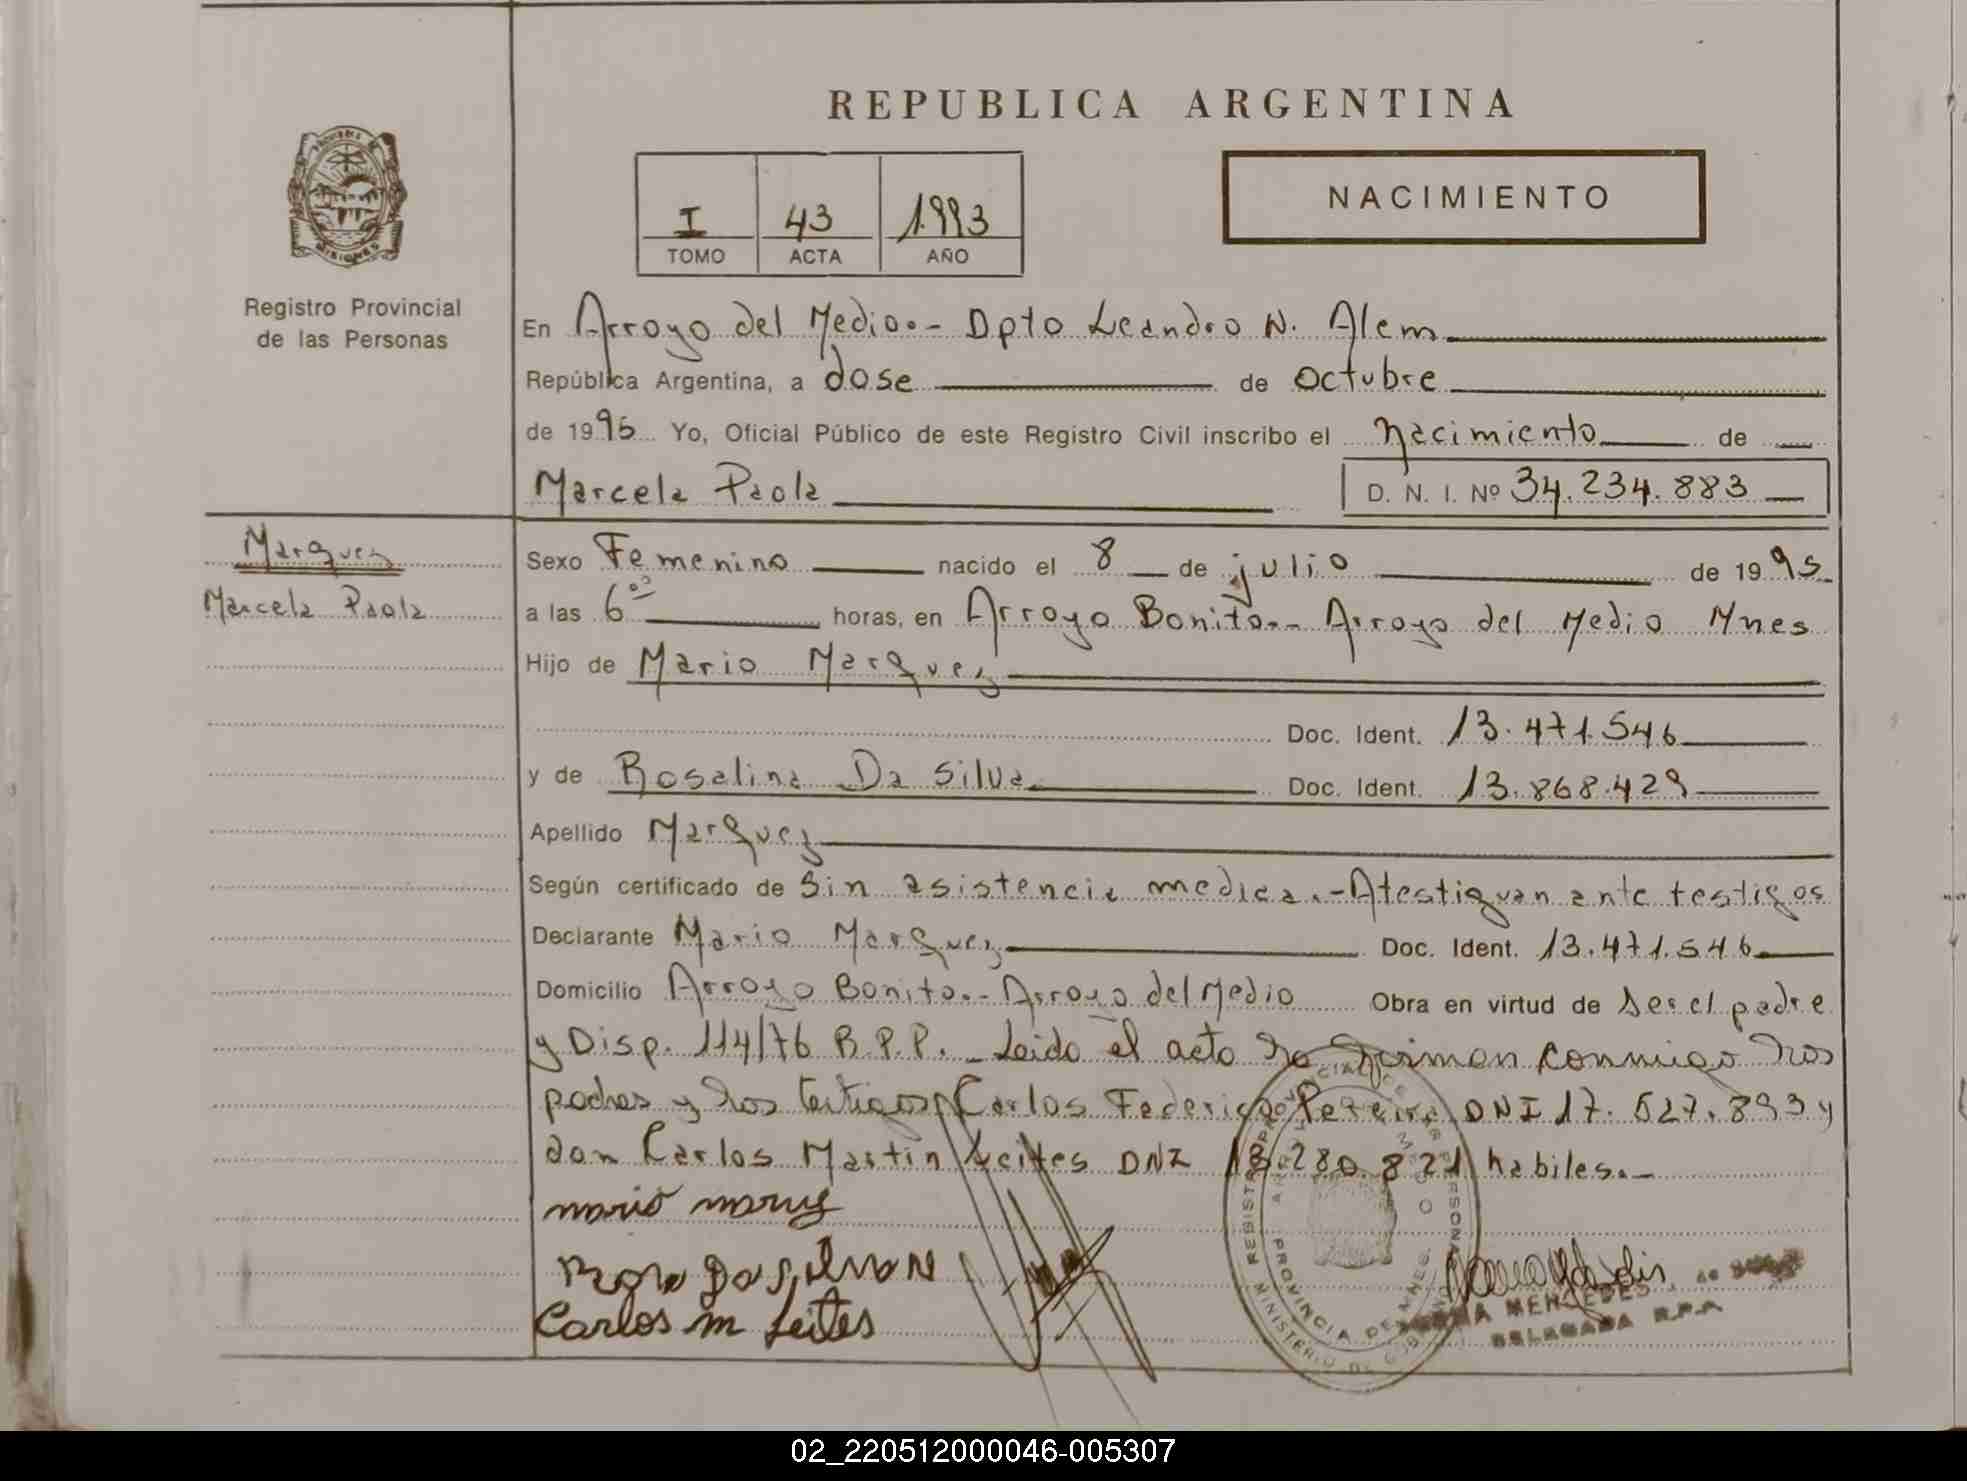 REPUBLICA ARGENTINA
NACIMIENTO
I 43 1.993
TOMO ACTA AÑO
MISIONES
Registro Provincial
de las Personas
En Arroyo del Medio.- Dpto Leandro N. Alem
República Argentina, a dose de Octubre
de 1995 Yo, Oficial Público de este Registro Civil inscribo el Nacimiento de
Marcela Paola D. N. I. Nº 34.234.883
Marquez
Marcela Paola
Sexo Femenino nacido el 8 de julio de 1995
a las 6 horas, en Arroyo Bonito.- Arroyo del Medio Mnes
Hijo de Mario Marquez
Doc. Ident. 13.471.546
y de Rosalina Da Silva Doc. Ident. 13.868.429
Apellido Marquez
Según certificado de Sin asistencia medica.- Atestiguan ante testigos
Declarante Mario Marquez Doc. Ident. 13.471.546
Domicilio Arroyo Bonito.- Arroyo del Medio Obra en virtud de ser el padre
y Disp. 114/76 R.P.P. - Leido el acto lo firman conmigo los
padres y los testigos Carlos Federico Pereira DNI 17.527.893 y
don Carlos Martin Leites DNI 13.280.821 habiles.-
mario
Rosa Da Silva
Carlos m Leites
MERCEDES
DELEGADA R.P.P.
PROVINCIA DE MISIONES
MINISTERIO DE
02_220512000046-005307